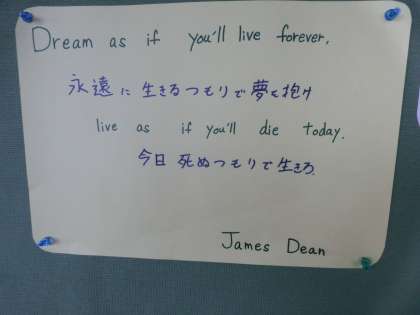 Dream as if you'll live forever.
永遠に生きるつもりで夢を抱け
live as if you'll die today.
今日死ぬつもりで生きろ.
James Dean